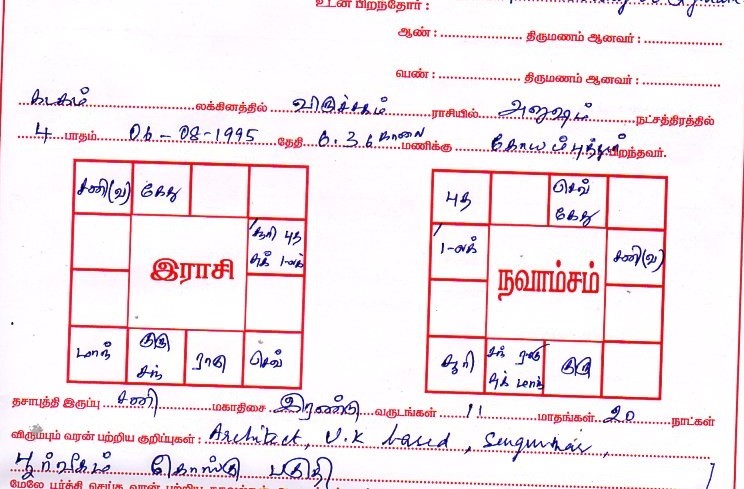 உடன் பிறந்தோர் :
ஆண் : .................... திருமணம் ஆனவர் : ....................
பெண் : .................... திருமணம் ஆனவர் : ....................
கடகம் லக்கினத்தில் விருச்சகம் ராசியில் அனுஷம் நட்சத்திரத்தில்
4 பாதம் 06-08-1995 தேதி 6.36 காலை மணிக்கு கோயம்புத்தூர் பிறந்தவர்.
சனி(வ) கேது
சூரி புத
சுக் 1-லக்
இராசி
மாந் குரு சந் ராகு செவ்
புத செவ் கேது
1-லக் சனி(வ)
நவாம்சம்
சூரி சந் ராகு சுக் மாந் குரு
தசாபுத்தி இருப்பு சனி மகாதிசை இரண்டு வருடங்கள் 11 மாதங்கள் 20 நாட்கள்
விரும்பும் வரன் பற்றிய குறிப்புகள் : Architect, U.K based, Sengunthar,
பூர்வீகம்